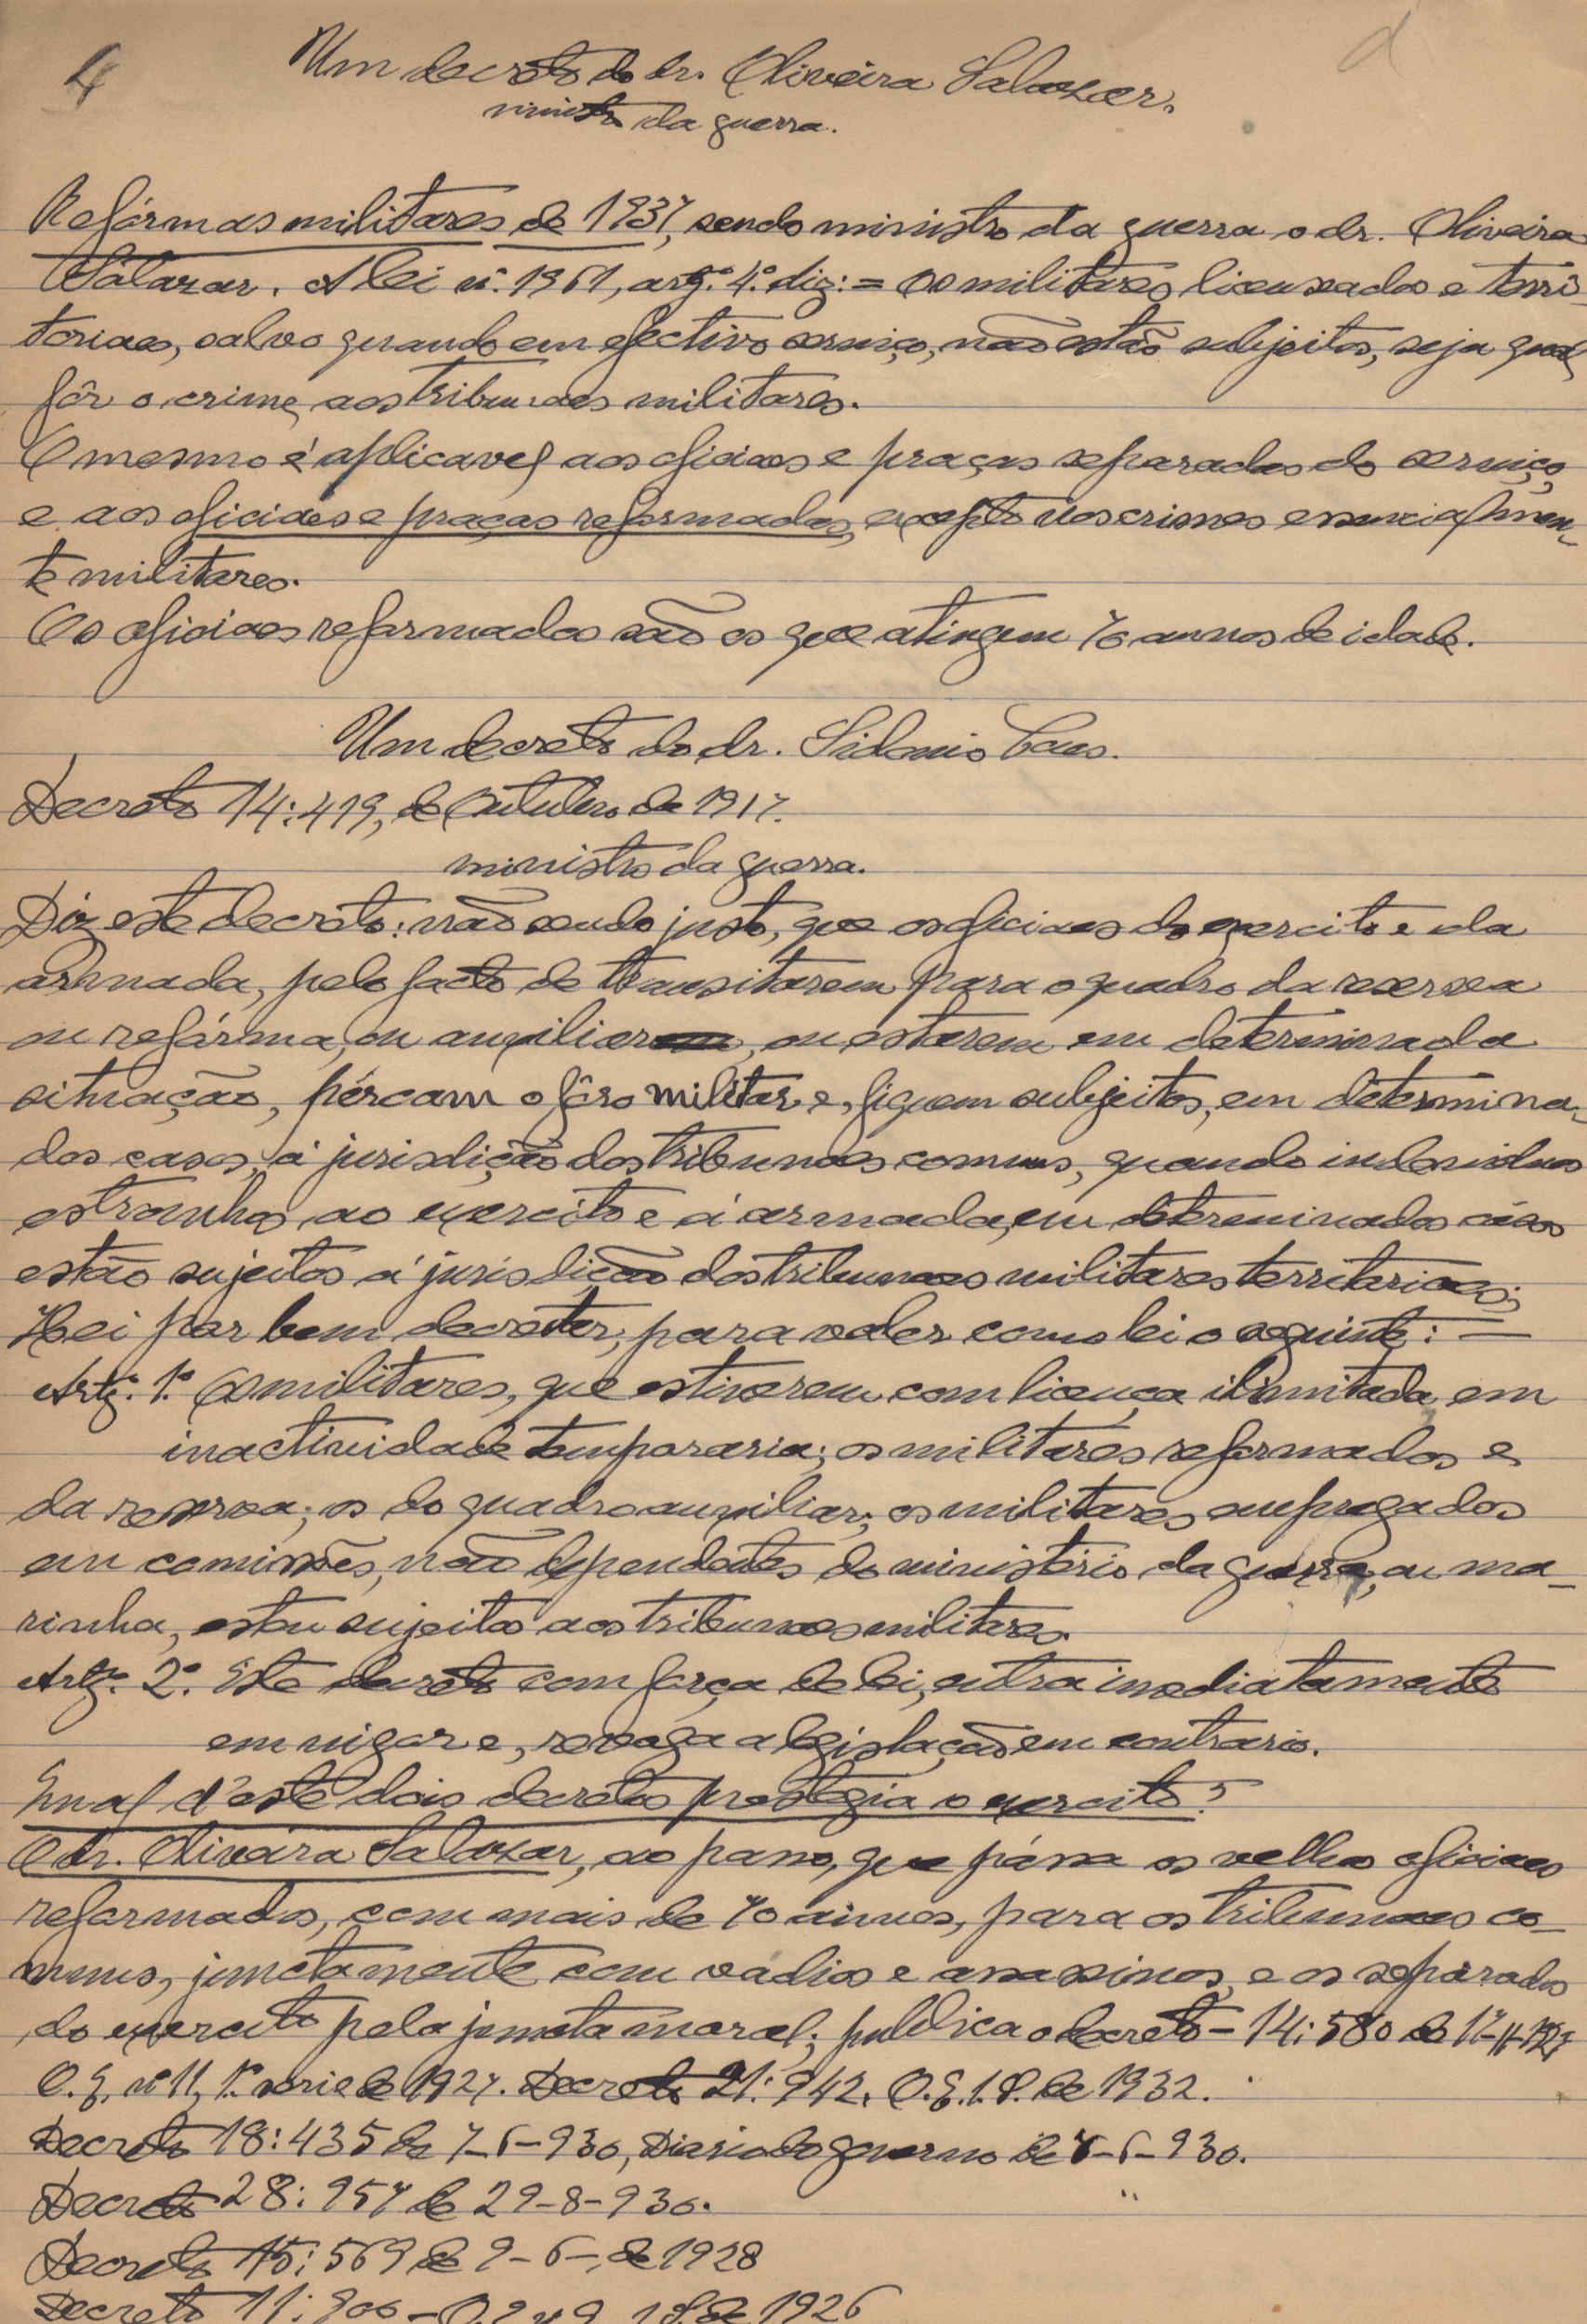 4
d
Um decreto do dr. Oliveira Salazar.
ministro da guerra.
Refórmas militares de 1937, sendo ministro da guerra o dr. Oliveira
Salazar. A lei n.º 1961, artg.º 4.º diz: = Os militares licenseados e terri-
toriaes, salvo quando em efectivo serviço, não estão subjeitos, seja qual
fôr o crime, aos tribunaes militares.
O mesmo é aplicavel aos oficiaes e praças separados do serviço,
e aos oficiaes e praças reformados, excepto nos crimes essencialmen-
te militares.
Os oficiaes reformados são os que atingem 70 annos de idade.
Um decreto do dr. Sidonio Paes.
Decreto 14:419, de Outubro de 1917.
ministro da guerra.
Diz este decreto: não sendo justo, que os oficiaes do exercito e da
armada, pelo facto de transitarem para o quadro da reserva
ou refórma, ou auxiliar, ou estarem em determinada
situação, pércam o fôro militar e, fiquem subjeitos, em determina-
dos casos, á jurisdição dos tribunaes comuns, quando individuos
estranhos ao exercito e á armada, em determinados casos
estão sujeitos á jurisdição dos tribunaes militares territoriaes;
Hei por bem decretar, para valer como lei o seguinte: —
Artg.º 1.º Os militares, que estiverem com licença ilimitada, em
inactividade temporaria; os militares reformados e
da reserva; os do quadro auxiliar; os militares empregados
em comissões, não dependentes do ministério da guerra, ou ma-
rinha, estão sujeitos aos tribunaes militares.
Artg.º 2.º Este decreto com força de lei, entra imediatamente
em vigor e, revoga a legislação em contrario.
Qual d'este dois decretos prestigia o exercito?
O dr. Oliveira Salazar, ao passo, que passa os velhos oficiaes
reformados, com mais de 70 annos, para os tribunaes co-
muns, junctamente com vadios e assassinos, e os separados
do exercito pela juncta moral; publica o decreto - 14:580 de 17-11-1927
O.E. nº 11, 1.ª serie de 1927. Decreto 21:942. O.E. 1.S. de 1932.
Decreto 18:435 de 7-6-930, Diario do governo de 7-6-930.
Decreto 28:957 de 29-8-930.
Decreto 15:569 de 9-6-, de 1928
Decreto 11:900 - O.E. nº 9 1.S. de 1926